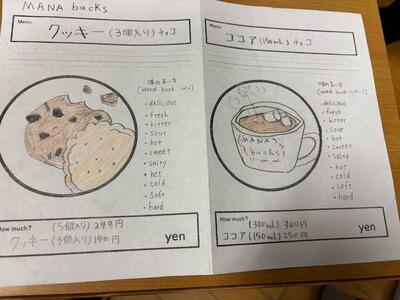 MANA backs
Menu
クッキー(3個入り)チョコ
味の言い方
(word book
・delicious
・fresh
・bitter
・sour
・hot
・sweet
・salty
・hot
・cold
・soft
・hard
How much?
(5個入り)249円
クッキー(3個入り)140円
yen
Menu
ココア(150mL)チョコ
味の言い方
(word book
・delicious
・fresh
・bitter
・sour
・hot
・sweet
・salty
・hot
・cold
・soft
・hard
MANA
backs
How much?
(300mL)300円
ココア(150mL)250円
yen